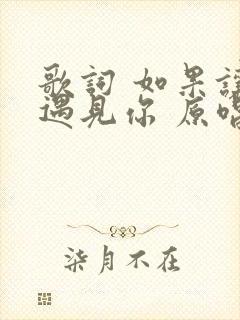 歌詞 如果讓
遇見你 原唱
柒月不在